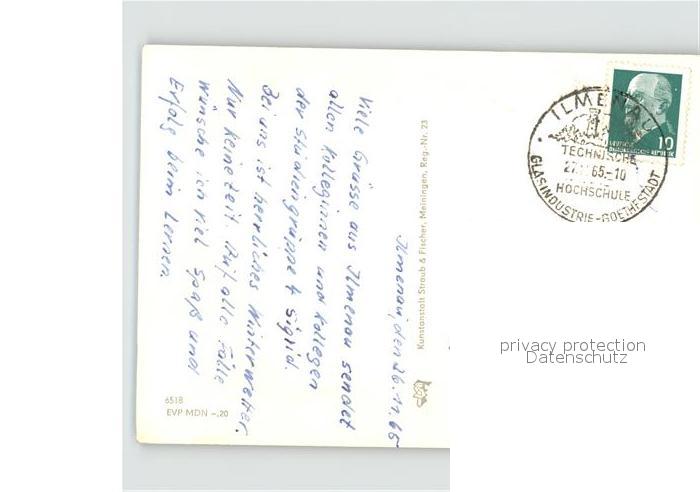 Ilmenau, den 26.11.65
Viele Grüsse aus Ilmenau sendet
allen Kolleginnen und Kollegen
der Studiengruppe 4 Sigrid.
Bei uns ist herrliches Winterwetter.
Nur keine Zeit. Auf alle Fälle
wünsche ich viel Spaß und
Erfolg beim Lernen.
6518
EVP MDN –,20
Kunstanstalt Straub & Fischer, Meiningen, Reg.-Nr. 23
ILMENAU
TECHNISCHE
65.-10
HOCHSCHULE
GLASINDUSTRIE-GOETHESTADT
10
privacy protection
Datenschutz